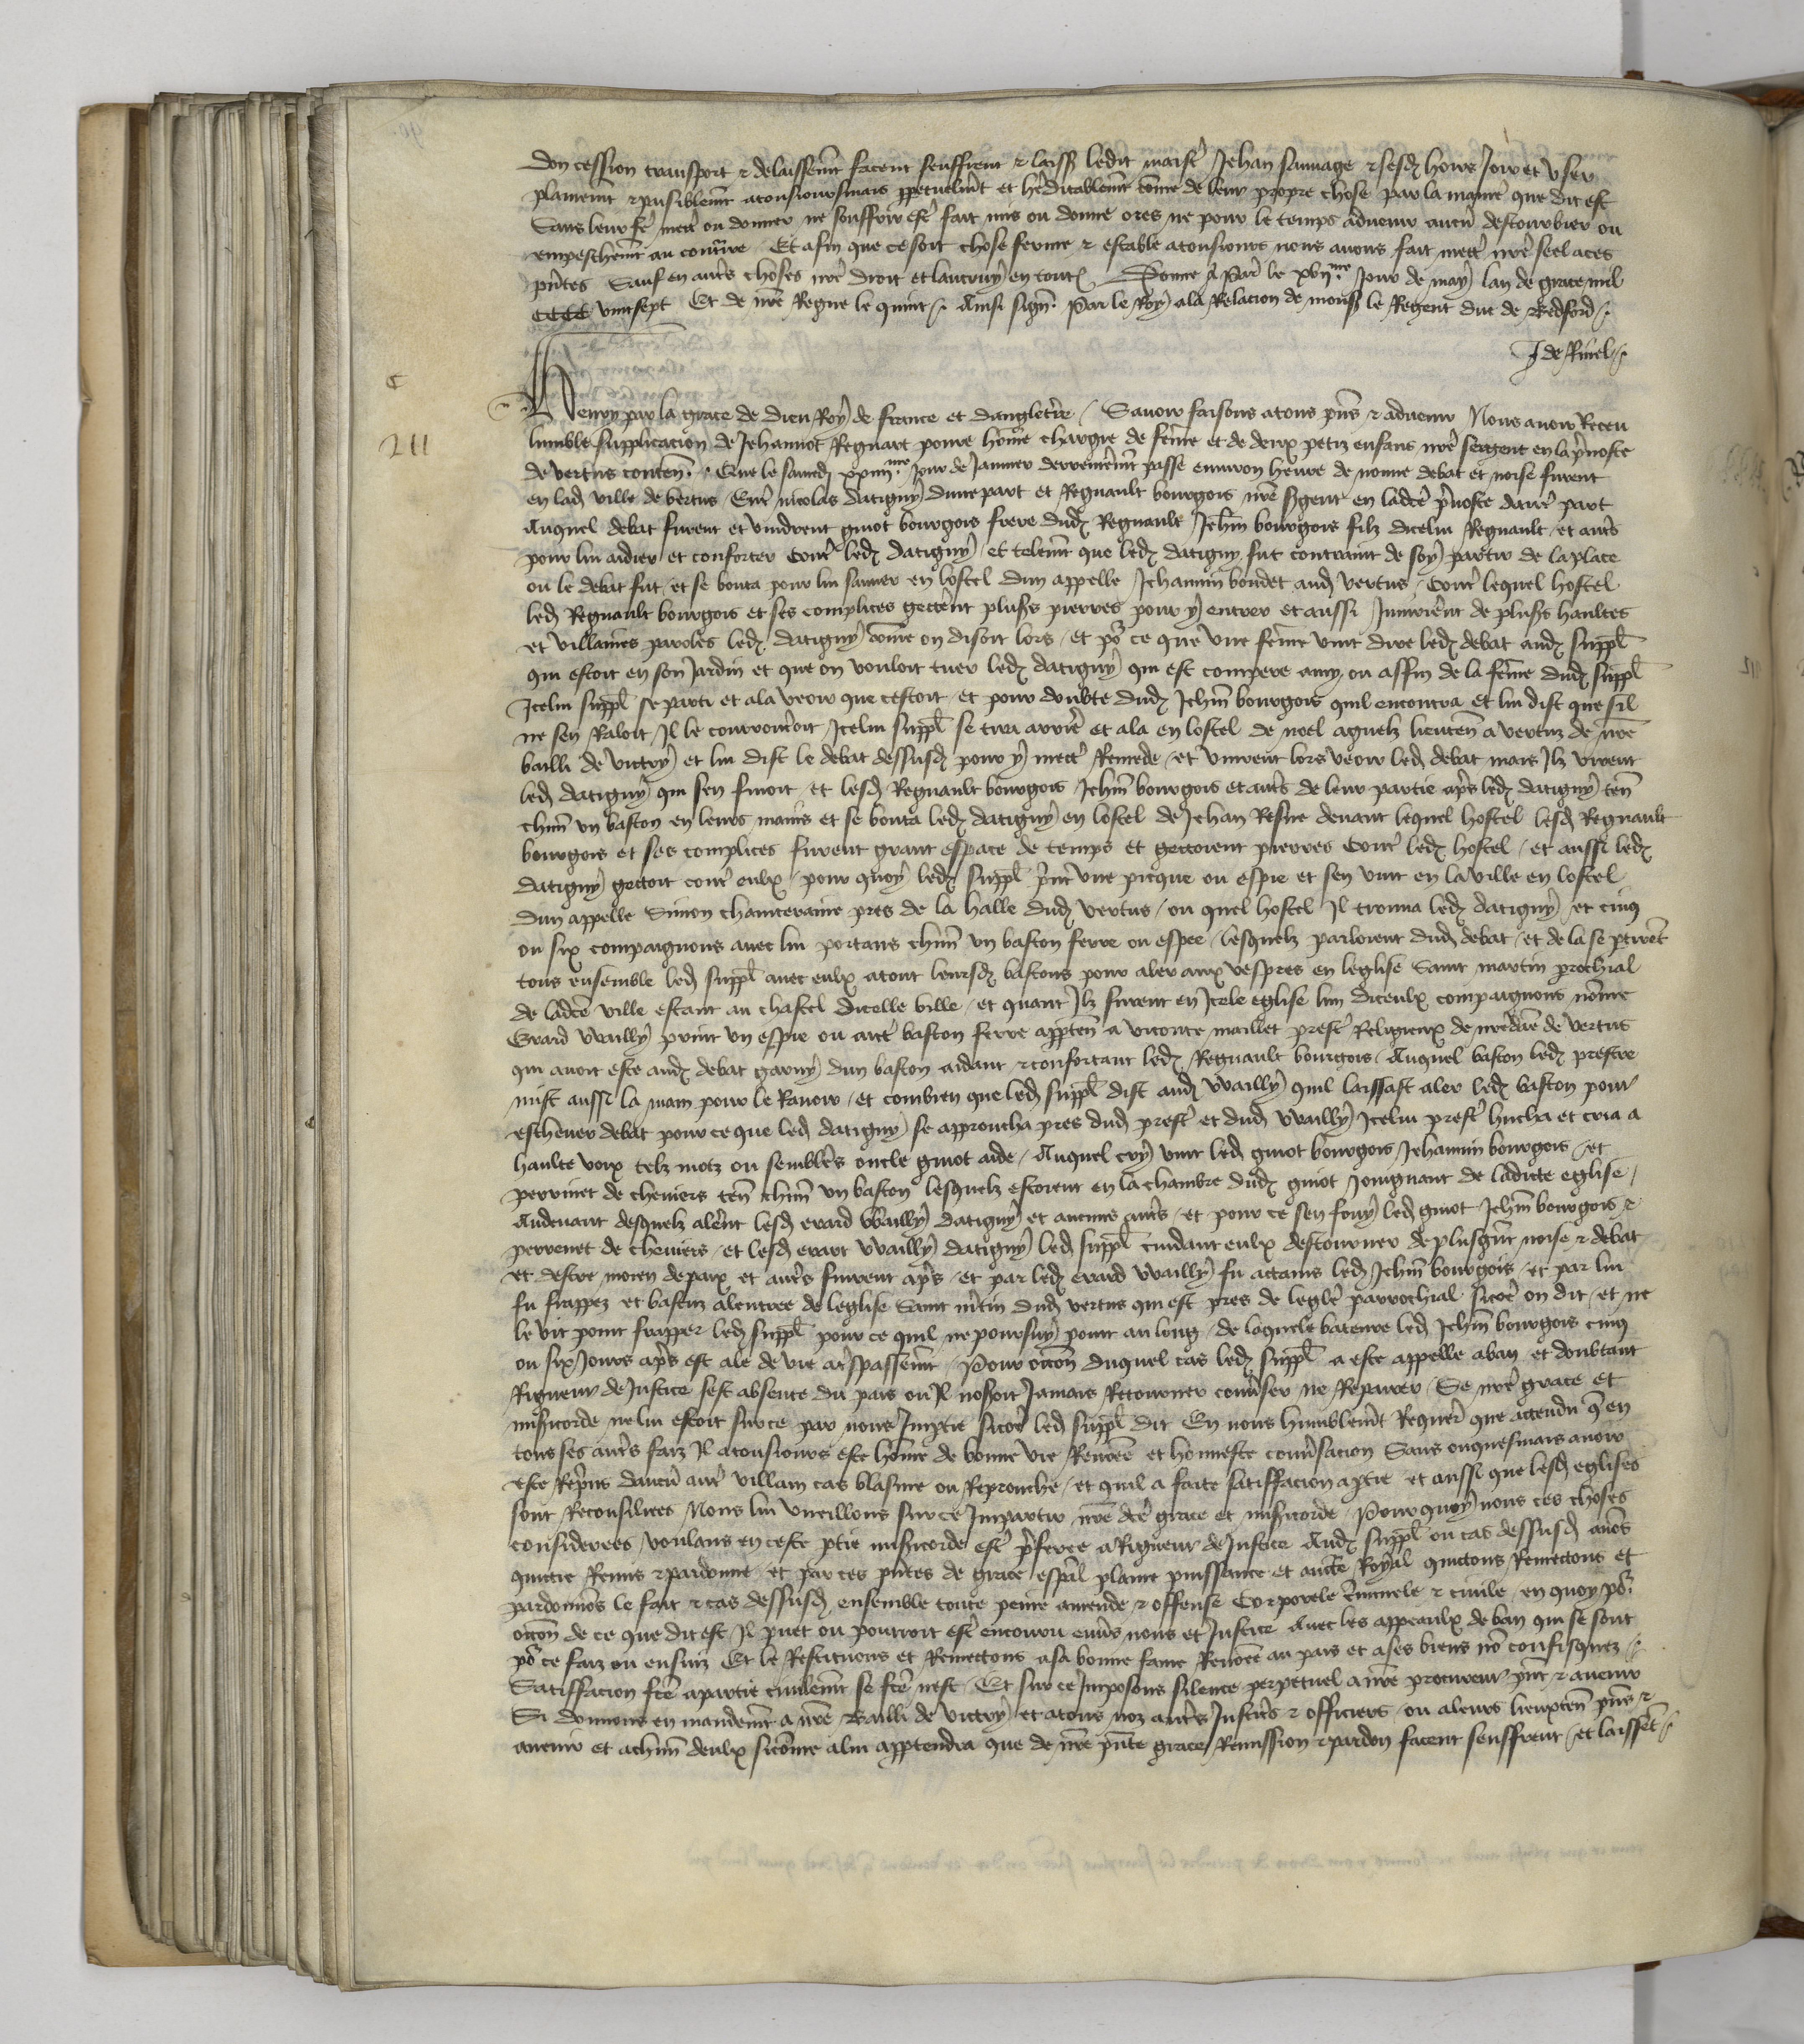 don cession transport & delaissemt facent seuffrent & laiss ledit maist Jehan sauuage & sesd hoirs Joir et vser
plainemt & paisiblemt atousioursmais ppetuelmt et heditablemt come de leur propre chose par la maniere que dit est
Sans leur fe mett ou donner ne souffrir est fait mis ou donne ores ne pour le temps aduenir aucu destourbier ou
empeschemt au contre Et afin que ce soit chose ferme & estable atousiours nous auons fait mett nre seel aces
pntes Sauf en autres choses nre droit et lautruy en toutes Donne a Par le xvijme Jour de may lan de grace mil
CCCC vintsept Et de nre Regne le quint /. Ainsi sign. Par le Roy ala Relacion de mons le Regent duc de Bedford /.
J de Rinel /.
C
211
Henry par la grace de dieu Roy de france et dangletre / Sauoir faisons atous pns & aduenir Nous auoir Receu
lumble supplicacion de Jehannot Regnart poure homme chargie de feme et de deux petiz enfans nre sergent en la preuoste
de vertus conten. Que le samed xxiiijme Jour de Januier derrenieremt passe enuiron heure de nonne debat et noise furent
en lad ville de vertus / Ent nicolas datigny dune part et Regnault bourgois nre sgent en ladte preuoste dautre part
Auquel debat furent et vindrent guiot bourgois frere dud Regnault / Jehan bourgois filz dicelui Regnault / et autrs
pour lui aidier et conforter cont led datigny / et telemt que led datigny fut contraint de soy partir de la place
ou le debat fut / et se bouta pour lui sauuer en lostel dun appelle Jehannin boudet aud vertus / Cont lequel hostel
led Regnault bourgois et ses complices gettent plus pierres pour y entrer et aussi Iniurient de plus haultes
et villaines paroles led datigny come on disoit lors / et po ce que vne feme vint dire led debat aud suppl
qui estoit en son Jardin et que on vouloit tuer led datigny qui est compere amy ou affin de la feme dud suppl
Icelui suppl se parti et ala veoir que cestoit / et pour doubte dud Jehan bourgois quil encontra et lui dist que sil
ne sen Raloit / Il le courrouceroit Icelui suppl se tira arrie et ala en lostel de noel aguelz lieuten a vertuz de nre
bailli de victry et lui dist le debat dessusd pour y mett Remede / et vindrent lors veoir led debat mais Ilz virent
led datigny qui sen fuioit / et lesd Regnault bourgois Jehan bourgois et autrs de leur partie apres led datigny ten
chm vn baston en leurs mains et se bouta led datigny en lostel de Jehan Resne deuant lequel hostel lesd Regnault
bourgois et ses complices furent grant espace de temps et gettoient pierres cont led hostel / et aussi led
datigny gettoit cont eulx / pour quoy led suppl print vne picque ou espie et sen vint en la ville en lostel
dun appelle Simon chanteraine pres de la halle dud vertus / ou quel hostel Il trouua led datigny / et cinq
ou six compaignons auec lui portans chm vn baston ferre ou espee / lesquelz parloient dud debat / et de la se ptirent
tous ensemble led suppl auec eulx atout leursd bastons pour aler aux vespres en leglise Saint martin prochial
de ladte ville estant au chastel dicelle ville / et quant Ilz furent en Icele eglise lun diceulx compaignons nome
Erard Wailly print vn espie ou autre baston ferre appten a viconte maillet prest Religieux de nre dame de vertus
qui auoit este aud debat garny dun baston aidant & confortant led Regnault bourgois / Auquel baston led prestre
mist aussi la main pour le Rauoir / et combien que led suppl dist aud Wailly quil laissast aler led baston pour
escheuer debat pour ce que led datigny se approucha pres dud prest et dud Wailly Icelui prest hucha et cria a
haulte voix telz motz ou semblers oncle guiot aide / Auquel cry vint led guiot bourgois / Jehannin bourgois / et
perrinet de cheniers ten chm vn baston lesquelz estoient en la chambre dud guiot Joingnant de ladicte eglise /
Audeuant desquelz alent lesd erard Wailly datigny et aucuns autrs / et pour ce sen fouy led guiot Jehan bourgois &
perrenet de cheniers / et lesd erart Wailly datigny led suppl cuidant eulx destourner de plusgnt noise & debat
et destre moien de paix et autres furent apres / et par led erard Wailly fu attains led Jehan bourgois / et par lui
fu frappez et batuz alentree de leglise Saint mtin dud vertus qui est pres de legle parrochial sicoe on dit / et ne
le vit point frapper led suppl pour ce quil ne poursuy point au long / de laquele bateure led Jehan bourgois cinq
ou six Jours apres est ale de vie a trespassemt / Pour occon duquel cas led suppl a este appelle aban et doubtant
Rigueur de Justice sest absente du pais ou Il noseroit Jamais Retourner conuser ne Reparer / Se nre grace et
misericorde ne lui estoit sur ce par nous Imptie sicoe led suppl dit En nous humblemt Requer que attendu q en
tous ses autres faiz Il atousiours este home de bonne vie Renomee et honneste conusacion Sans onquesmais auoir
este Reprins daucu autre villain cas blasme ou Reprouche / et quil a faite satiffacion aptie et aussi que lesd eglises
sont Reconsiliees Nous lui vueillons sur ce Impartir nre dte grace et misericorde / Pour quoy nous ces choses
considerees / voulans en ceste ptie misericorde est preferee a Rigueur de Justice Aud suppl ou cas dessusd auons
quictie Remis & pardonne / et par ces pntes de grace espal plaine puissance et aucte Royal quictons Remectons et
pardonnons le fait & cas dessusd ensemble toute peine amende & offense Corporele criminele & ciuile / en quoy po
occon de ce que dit est / Il puet ou pourroit est encouru enuers nous et Justice Auec les appeaulx de ban qui se sont
po ce faiz ou ensuiz Et le Restituons et Remectons asa bonne fame Renomee au pais et a ses biens no confisquez /
Satiffacion fte apartie ciuilemt se fte nest / Et sur ce Imposons silence perpetuel a nre procureur pnt & auenir
Si donnons en mandemt a nre Bailli de victry et atous noz autres Justiciers & officiers / ou aleurs lieuxten pns &
auenir et achm deulx sicomme alui apptendra que de nre pnte grace Remission & pardon facent seuffrent / et laissent /.